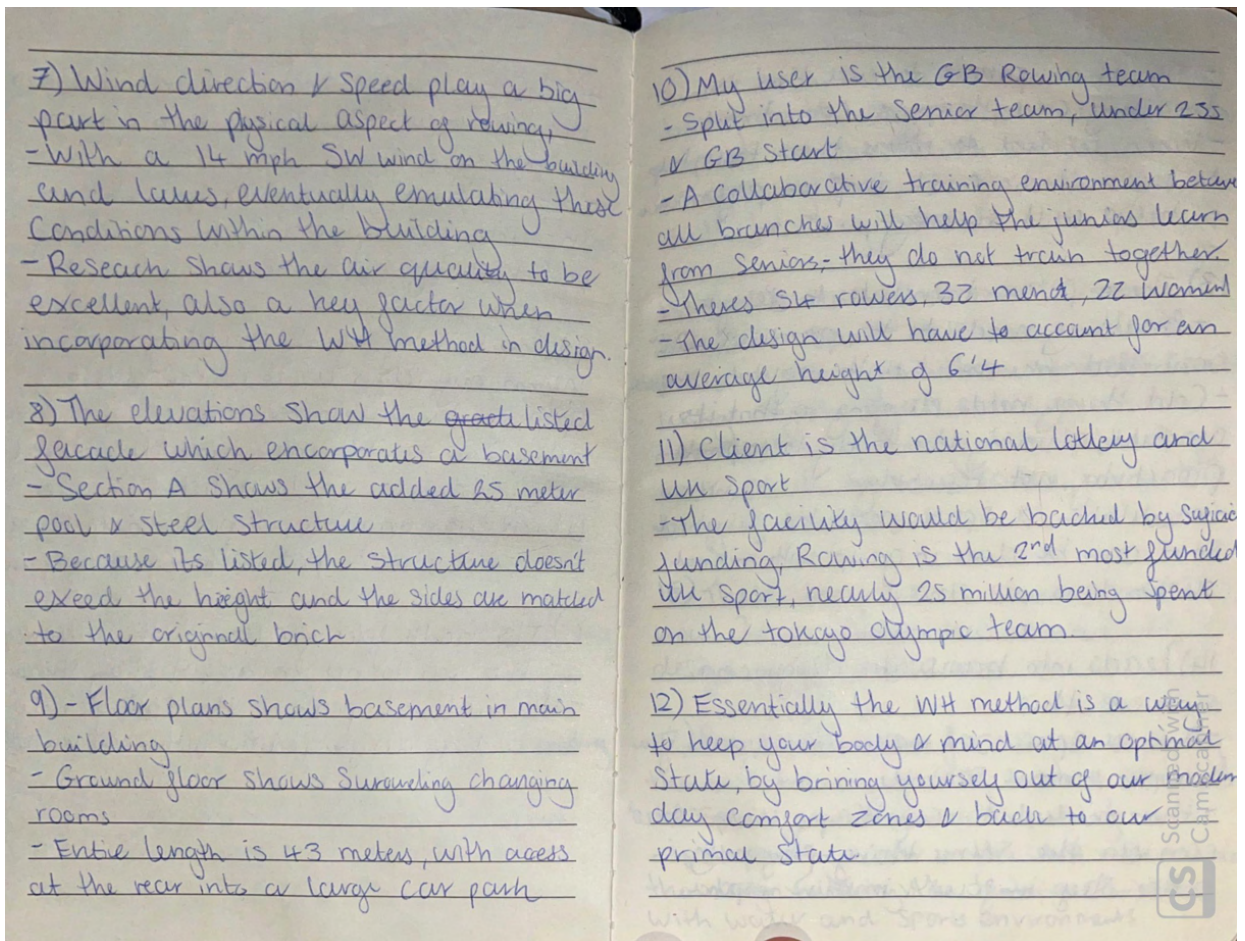 7) Wind direction & Speed play a big
part in the physical aspect of rowing,
- With a 14 mph SW wind on the building
and laws, eventually emulating these
Conditions within the building
- Reseach shows the air quality to be
excellent, also a key factor when
incorporating the WH method in design.
8) The elevations show the listed
facade which encorporates a basement
- Section A shows the added 25 meter
pool & steel structure
- Because its listed, the structure doesn't
exeed the height and the sides are matched
to the original brick
9) - Floor plans shows basement in main
building
- Ground floor shows Surounding changing
rooms
- Entie length is 43 meters, with access
at the rear into a large car park
10) My user is the GB Rowing team
- Split into the Senior team, under 23s
& GB Start
- A collaborative training environment betwe
all branches will help the juniors learn
from Seniors, - they do not train together.
- Theres 54 rowers, 32 men &, 22 women
- The design will have to account for an
average height of 6'4
11) Client is the national lottery and
UK Sport
- The facility would be backed by
funding, Rowing is the 2nd most funded
UK Sport, nearly 25 million being spent
on the tokoyo olympic team.
12) Essentially the WH method is a way
to keep your body & mind at an optimal
State, by brining yourself out of our modern
day comfort zones & back to our
primal state
with water and sports environments
Scanned with
CamScanner
CS